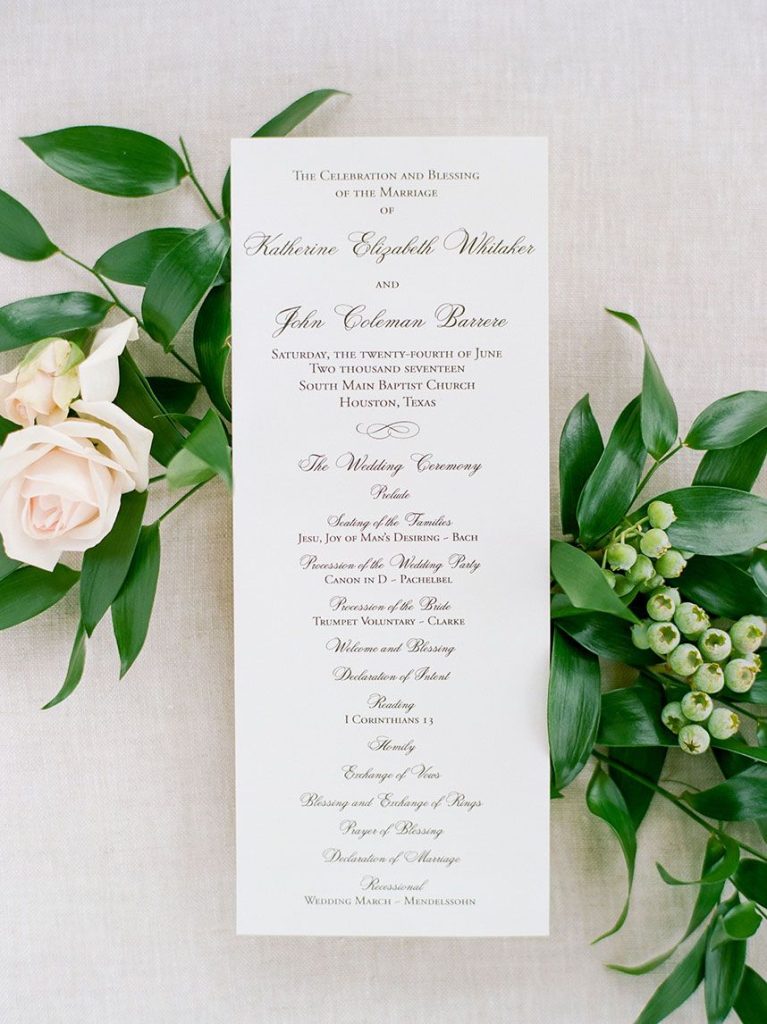 The Celebration and Blessing
of the Marriage
of
Katherine Elizabeth Whitaker
and
John Coleman Barrere
Saturday, the twenty-fourth of June
Two thousand seventeen
South Main Baptist Church
Houston, Texas
The Wedding Ceremony
Prelude
Seating of the Families
Jesu, Joy of Man's Desiring ~ Bach
Procession of the Wedding Party
Canon in D ~ Pachelbel
Procession of the Bride
Trumpet Voluntary ~ Clarke
Welcome and Blessing
Declaration of Intent
Reading
I Corinthians 13
Homily
Exchange of Vows
Blessing and Exchange of Rings
Prayer of Blessing
Declaration of Marriage
Recessional
Wedding March ~ Mendelssohn